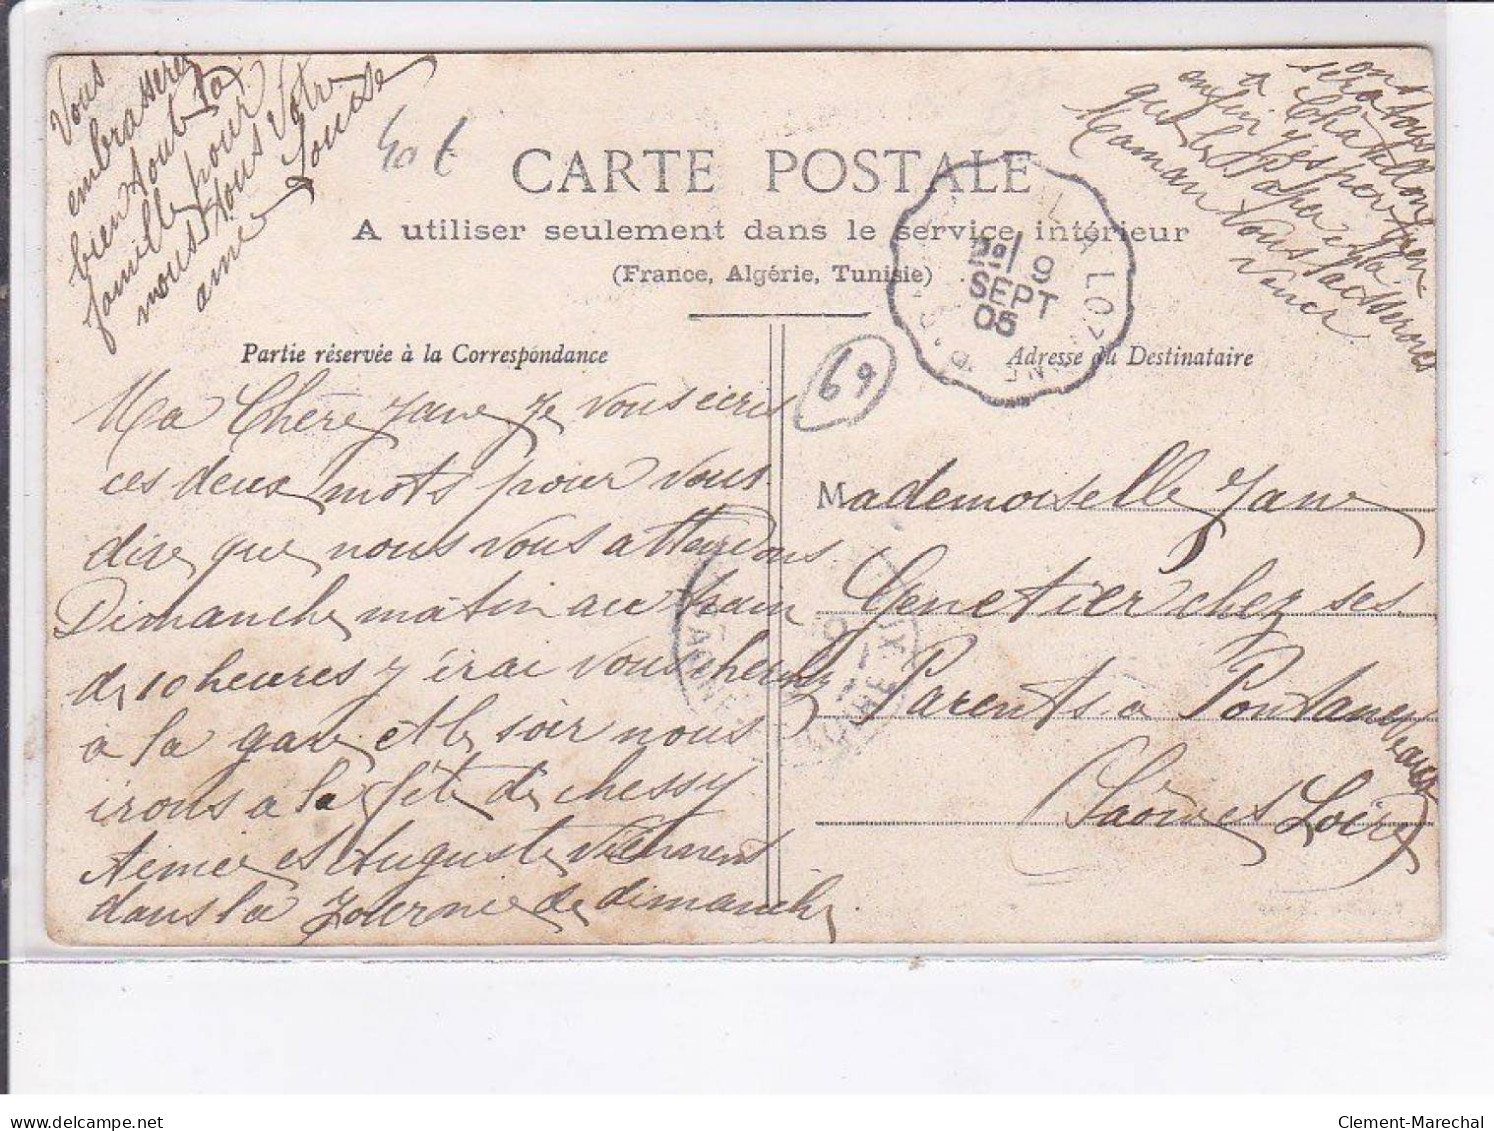 Vous
embrasserez
bien tout la
famille pour
nous tous Votre
amie Louise
40 f
CARTE POSTALE
A utiliser seulement dans le service intérieur
(France, Algérie, Tunisie)
Partie réservée à la Correspondance
Adresse du Destinataire
69
9
SEPT
05
Ma Chère Jane Je vous ecris
ces deux mots pour vous
dire que nous vous attendons
Dimanche matin au train
de 10 heures j'irai vous cherche
a la gare et le soir nous
irons a la fête de chessy
Aimee et Auguste Viennent
dans la Journee de dimanche
on
sera tous
a Chatillon
enfin j'espere bien
que le Papa et la
Maman Vous laisserons
venir
Mademoiselle Jane
Genetier chez ses
Parents a Pontanevaux
Saône et Loire
Clement-Marechal
delcampe.net